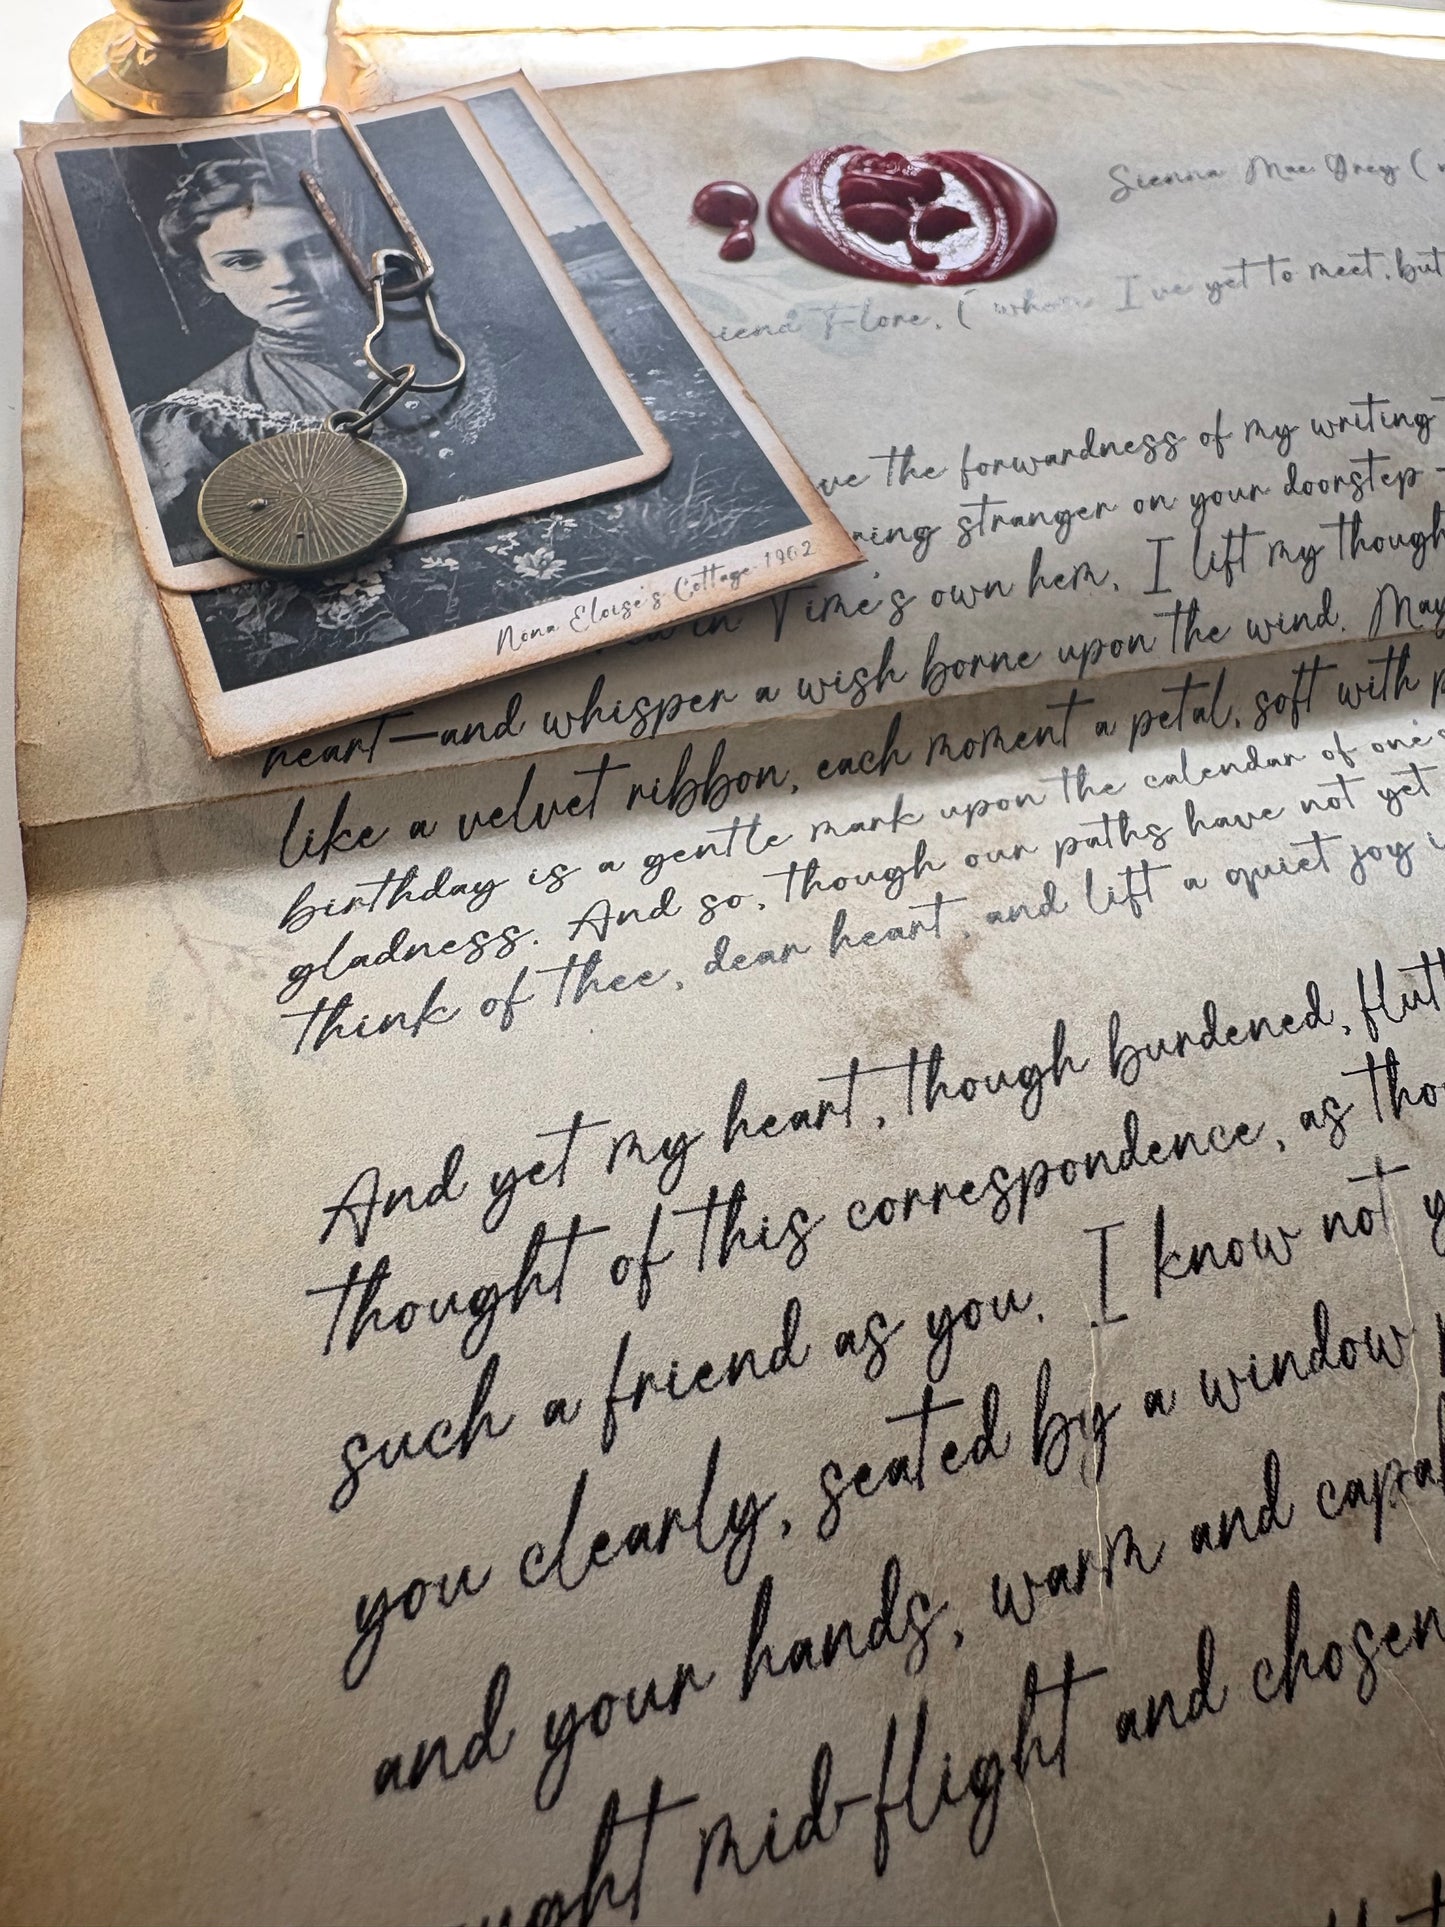 Sienna Mae Grey (
Flore, ( whom I've yet to meet, but
the forwardness of my writing
stranger on your doorstep -
in Time's own hem, I lift my though
heart—and whisper a wish borne upon the wind. May
like a velvet ribbon, each moment a petal, soft with p
birthday is a gentle mark upon the calendar of one's
gladness. And so, though our paths have not yet
think of thee, dear heart, and lift a quiet joy i
And yet my heart, though burdened, flutt
thought of this correspondence, as tho
such a friend as you. I know not y
you clearly, seated by a window
and your hands, warm and capa
mid-flight and chosen
Nona Eloise's Cottage 1902